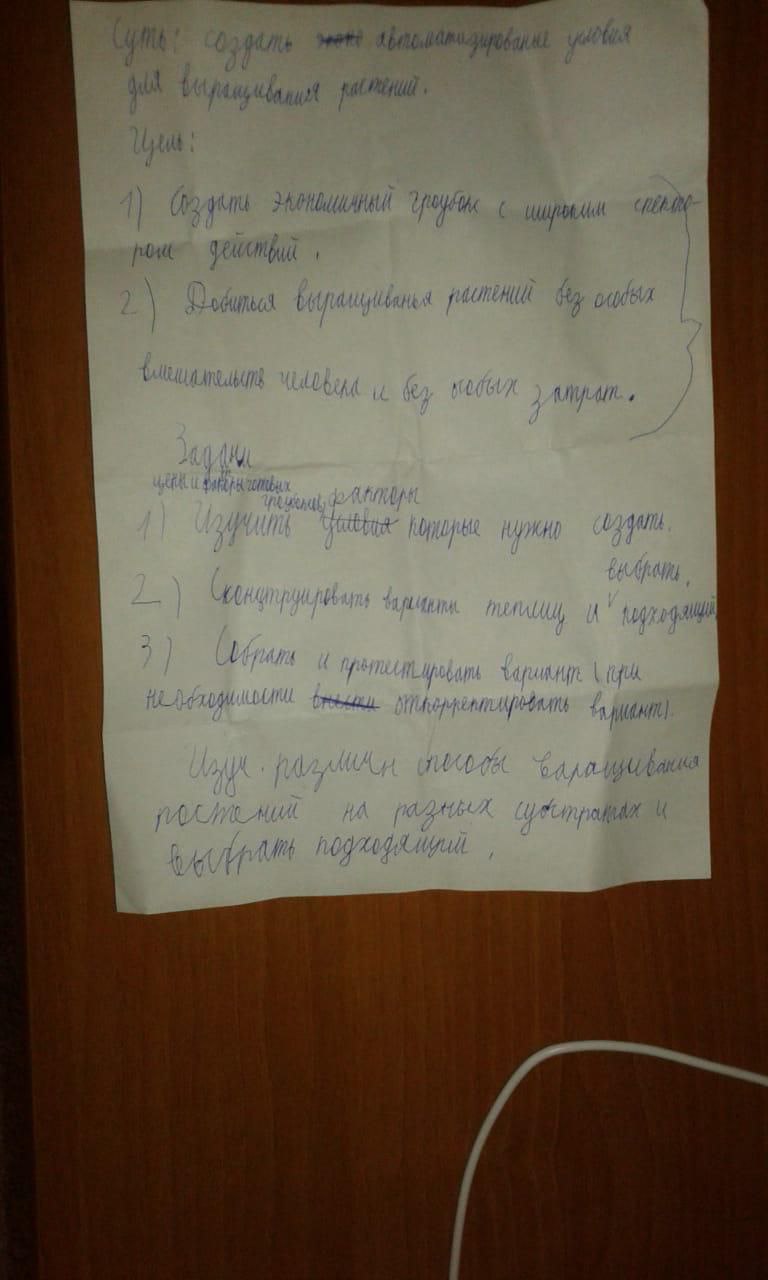 Суть: создать автоматизированые условия
для выращивания растений.
Цель:
1) Создать экономичный гроубокс с широким спект-
ром действий.
2) Добиться выращиванья растений без особых
вмешательств человека и без особых затрат.
Задачи
цены и факторы готвых
гроубоксов, факторы
1) Изучить условия которые нужно создать.
выбрать
2) Сконцтруировать варианты теплиц и подходящий.
3) Собрать и протестировать вариант (при
необходимости внести откорректировать вариант).
Изуч. различн способы варащивания
ростений на разных субстратах и
выбрать подходящий.